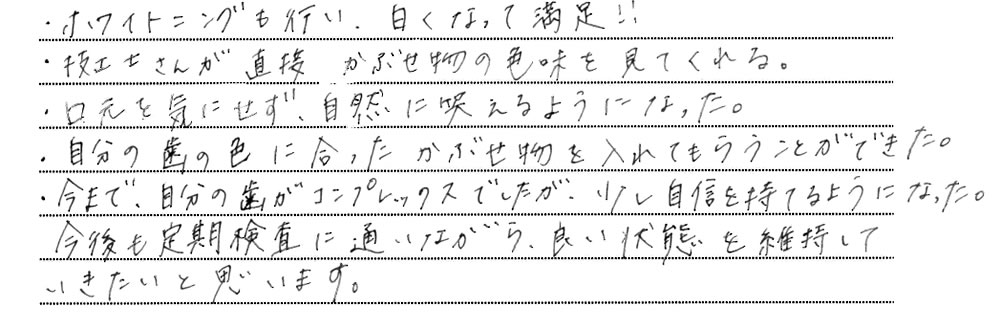 ・ホワイトニングも行い、白くなって満足!!
・技工士さんが直接 かぶせ物の色味を見てくれる。
・口元を気にせず、自然に笑えるようになった。
・自分の歯の色に合ったかぶせ物を入れてもらうことができた。
・今まで、自分の歯がコンプレックスでしたが、少し自信を持てるようになった。
今後も定期検査に通いながら、良い状態を維持して
いきたいと思います。